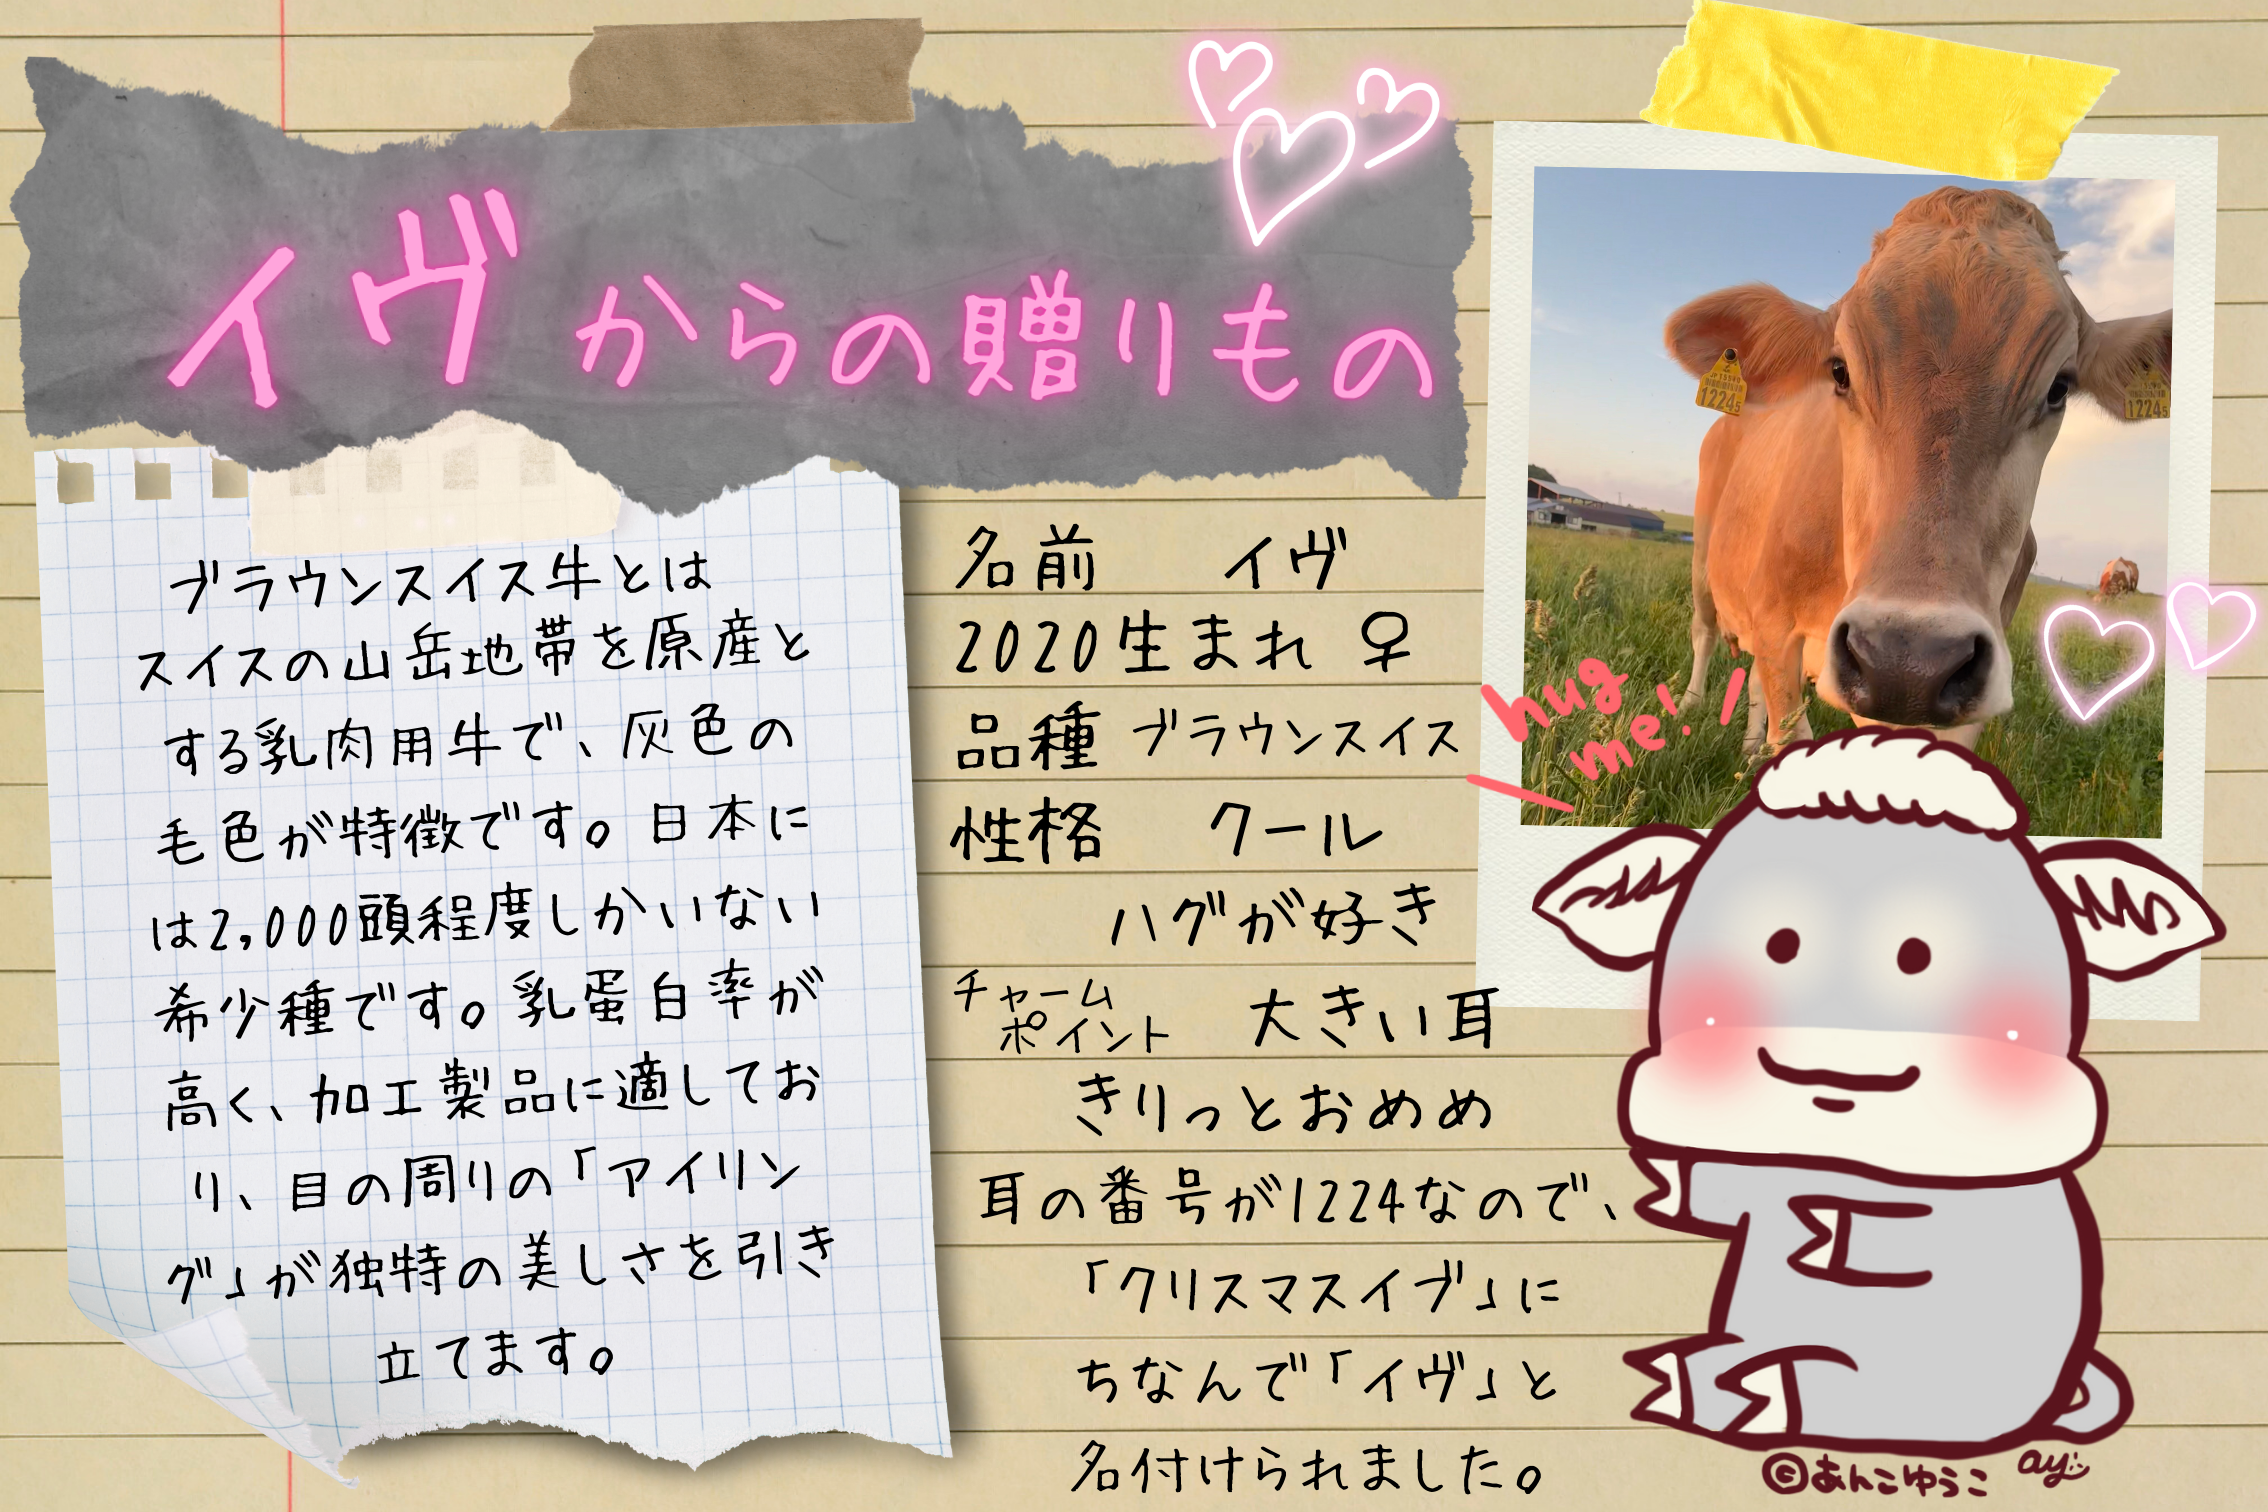 イヴからの贈りもの
ブラウンスイス牛とは
スイスの山岳地帯を原産と
する乳肉用牛で、灰色の
毛色が特徴です。日本に
は2,000頭程度しかいない
希少種です。乳蛋白率が
高く、加工製品に適してお
り、目の周りの「アイリン
グ」が独特の美しさを引き
立てます。
名前 イヴ
2020生まれ ♀
品種 ブラウンスイス
性格 クール
ハグが好き
チャーム
ポイント 大きい耳
きりっとおめめ
耳の番号が1224なので、
「クリスマスイブ」に
ちなんで「イヴ」と
名付けられました。
hug
me!
1224
1224
©あんこゆうこ ay